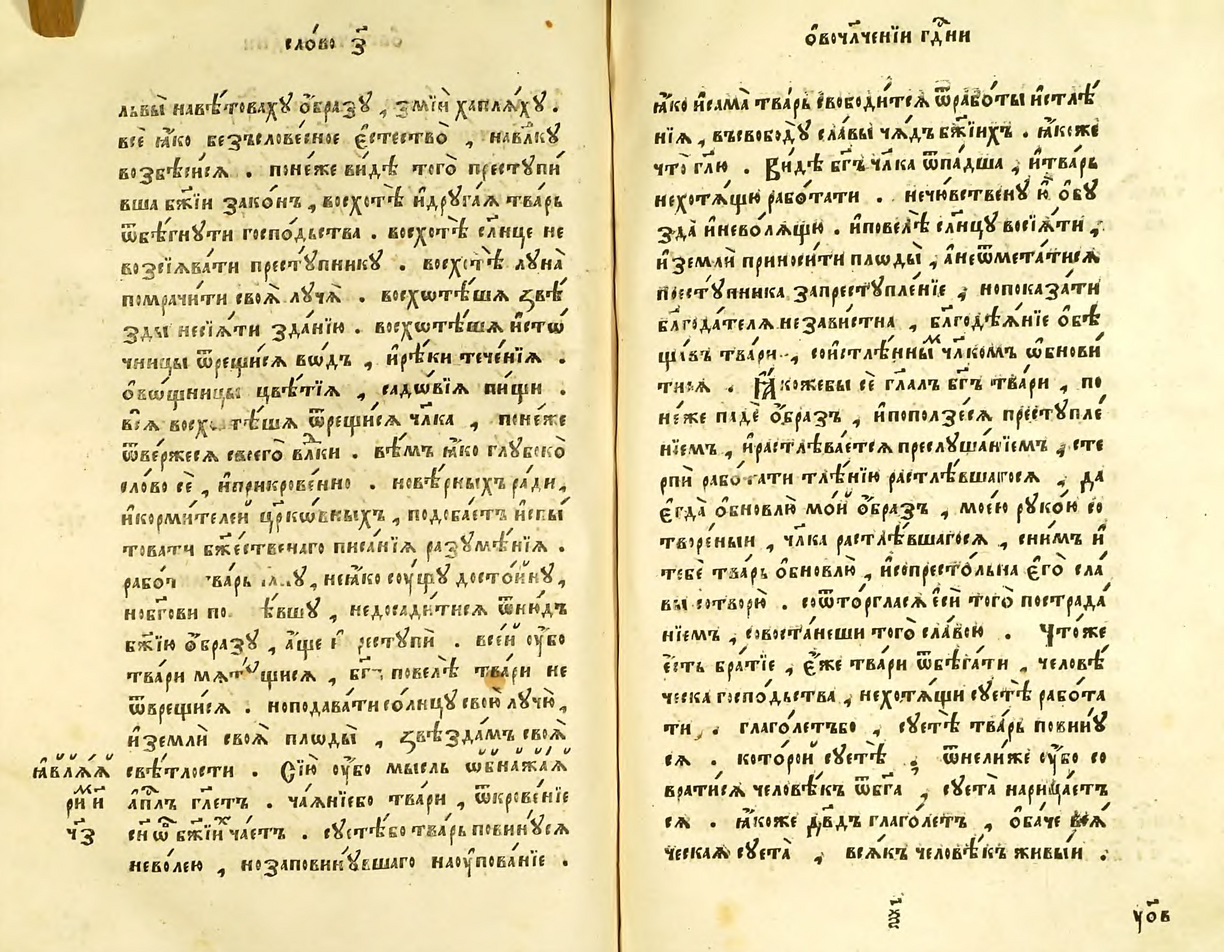 сло́во з҃
львы̀ навѣ́товахꙋ ѻ҆́бразꙋ , змїѝ хаплѧ́хꙋ .
всѐ ꙗ҆́ко безъслове́сное є҆стество̀ , навл҃кꙋ
возбѣси́сѧ . поне́же ви́дѣ того̀ престꙋпи́
вша бж҃їи зако́нъ , восхотѣ̀ и҆дрꙋга́ѧ тва́рь
ѿбѣ́гнꙋти госпо́дьства . восхотѣ̀ сл҃нце не
возсїѧва́ти престꙋ́пникꙋ . восхотѣ̀ лꙋна̀
помрачи́ти своѧ̀ лꙋчѧ̀ . восхѡтѣ́шѧ ѕвѣ́
зды несїѧ́ти зда́нїю . восхѡтѣ́шѧ и҆стѡ́
чницы ѿрещи́сѧ во́дъ , и҆рѣ́ки тече́нїѧ .
ѻ҆во́щницы цвѣ́тїѧ , садо́вїѧ пи́щи .
всѧ̀ ѿрещи́сѧ чл҃ка , поне́же
ѿве́ржесѧ своего̀ влⷣки . вѣ́мъ ꙗ҆́ко глꙋбоко̀
сло́во сѐ , и҆прикрове́нно . новѣ́рныхъ ра́ди ,
и҆корми́телей цр҃ко́вныхъ , подоба́етъ и҆спы́
товати бж҃е́ственаго писа́нїѧ разꙋмѣ́нїѧ .
неꙗ҆́ко сꙋ́щꙋ досто́йнꙋ ,
нобг҃ови недосади́тисѧ ѿню́дъ
бж҃їю ѻ҆́бразꙋ , а҆́ще . все́й оу҆́бо
тва́ри бг҃ъ повелѣ̀ тва́ри не
ѿврещи́сѧ . ноподава́ти со́лнцꙋ свою̀ лꙋчю̀ ,
и҆землѝ своѧ̀ плоды̀ , ѕвѣзда́мъ своѧ̀
свѣ́тлости . Сїю̀ оу҆́бо мы́сль ѡ҆бнажа́ѧ
а҆пⷭ҇лъ гл҃етъ . ча́ѧнїебо тва́ри , ѿкрове́нїе
сн҃ѡвъ бж҃їихъ ча́етъ . сꙋетѣ́бо тва́рь повинꙋ́сѧ
нево́лею , нозаповинꙋ́вшаго наоу҆пова́нїе .
ри́м и҃
ч҃з
ѻ҆вочл҃че́нїи гдⷭ҇ни
ꙗ҆́ко и҆сама̀ тва́рь свободи́тсѧ ѿрабо́ты и҆стлѣ́
нїѧ , въсвобо́дꙋ сла́вы чѧ́дъ бж҃їихъ . ꙗ҆́коже
что̀ гл҃ю . Ви́дѣ бг҃ъ чл҃ка ѿпа́дша , и҆тва́рь
нехотѧ́щю рабо́тати . нечю́вственꙋ ю҆̀ ѻ҆бꙋ
зда̀ и҆нево́лѧщю . и҆повелѣ̀ сл҃нцꙋ восїѧ́ти ,
и҆ землѝ приноси́ти плоды̀ , а҆неѿмета́тисѧ
престꙋ́пника запрестꙋпле́нїе , нопоказа́ти
благода́телѧ незави́стна , благодѣѧ́нїе ѻ҆бѣ
ща́въ тва́ри , сои҆стлѣ́нныⷨ чл҃комъ ѡ҆бнови́
тисѧ . Ꙗ҆́кожебы сѐ гл҃алъ бг҃ъ тва́ри , по
не́же падѐ ѻ҆́бразъ , и҆поползе́сѧ престꙋпле́
нїемъ , и҆растлѣва́етсѧ преслꙋша́нїемъ , сте
рпѝ рабо́тати тлѣ́нїю растлѣ́вшагосѧ , да
є҆гда̀ ѻ҆бновлю̀ мо́й ѻ҆́бразъ , мое́ю рꙋко́ю со
творе́ный , чл҃ка растлѣ́вшагосѧ , сни́мъ и҆
тебѐ тва́рь ѻ҆бновлю̀ , и҆сопресто́льна є҆го̀ сла́
вы сотворю̀ . соѿто́ргласѧ є҆сѝ того̀ пострада́
нїемъ , совоста́неши того̀ сла́вою . Что́же
є҆́сть бра́тїе , є҆́же тва́ри ѿбѣга́ти , человѣ́
ческа госпо́дьства , нехотѧ́щи сꙋетѣ̀ рабо́та
ти . глаго́летъбо , сꙋетѣ̀ тва́рь повинꙋ́
сѧ . кото́рой сꙋетѣ̀ ; ѿнели́же оу҆́бо со
врати́сѧ человѣ́къ ѿбг҃а , сꙋета̀ нарица́етъ
сѧ . ꙗ҆́коже дв҃дъ глаго́летъ , ѻ҆ба́че всѧ́
ческаѧ сꙋета̀ , всѧ́къ человѣ́къ живы́й .